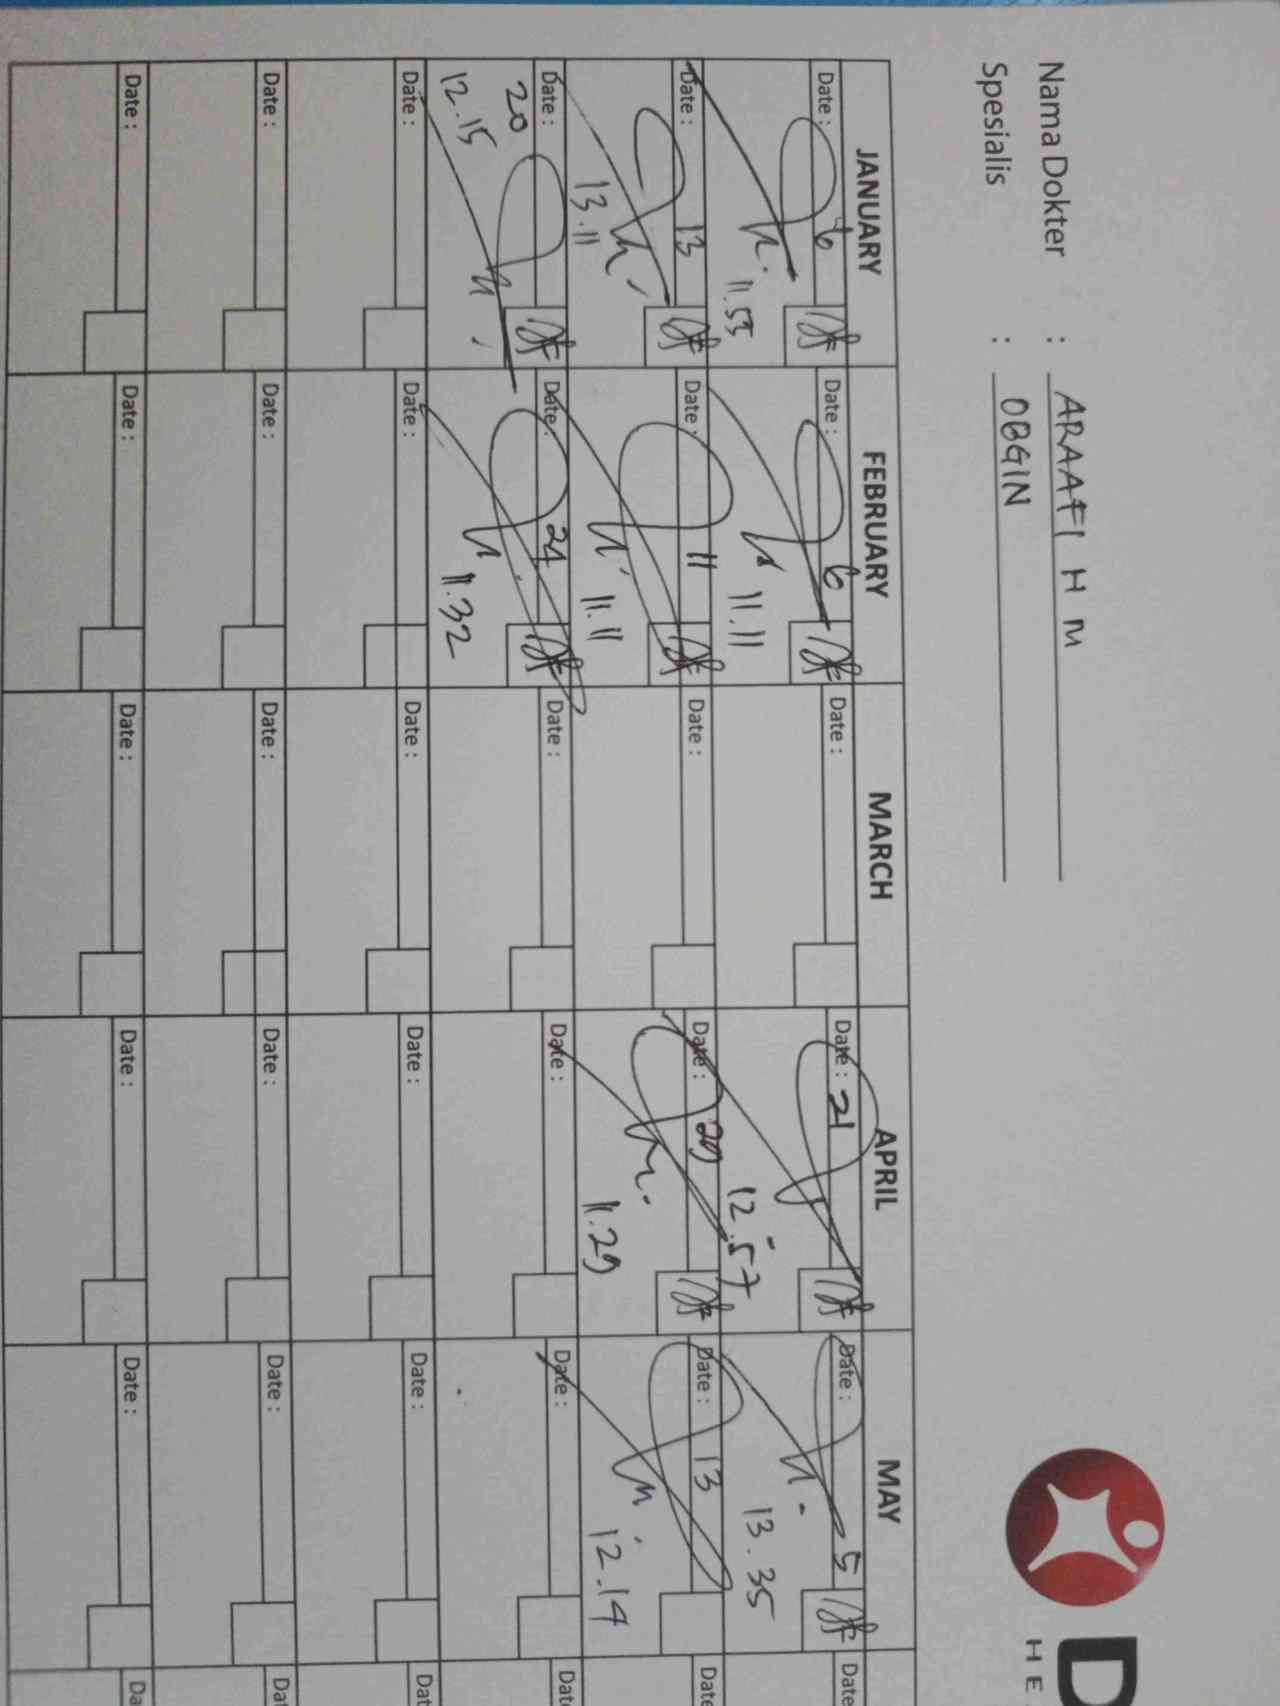 Nama Dokter : ARAAFI H M
Spesialis : OBGIN
D
HE
JANUARY FEBRUARY MARCH APRIL MAY
Date : 6 Date : 6 Date : Date : 21 Date : 5 Date
11.55 11.11 12.57 13.35
Date : 13 Date : 11 Date : Date : 29 Date : 13 Date
13.11 11.11 11.29 12.14
Date : Date : 24 Date : Date : Date : Date
20
12.15 11.32
Date : Date : Date : Date : Date : Dat
Date : Date : Date : Date : Date : Dat
Date : Date : Date : Date : Date : Da